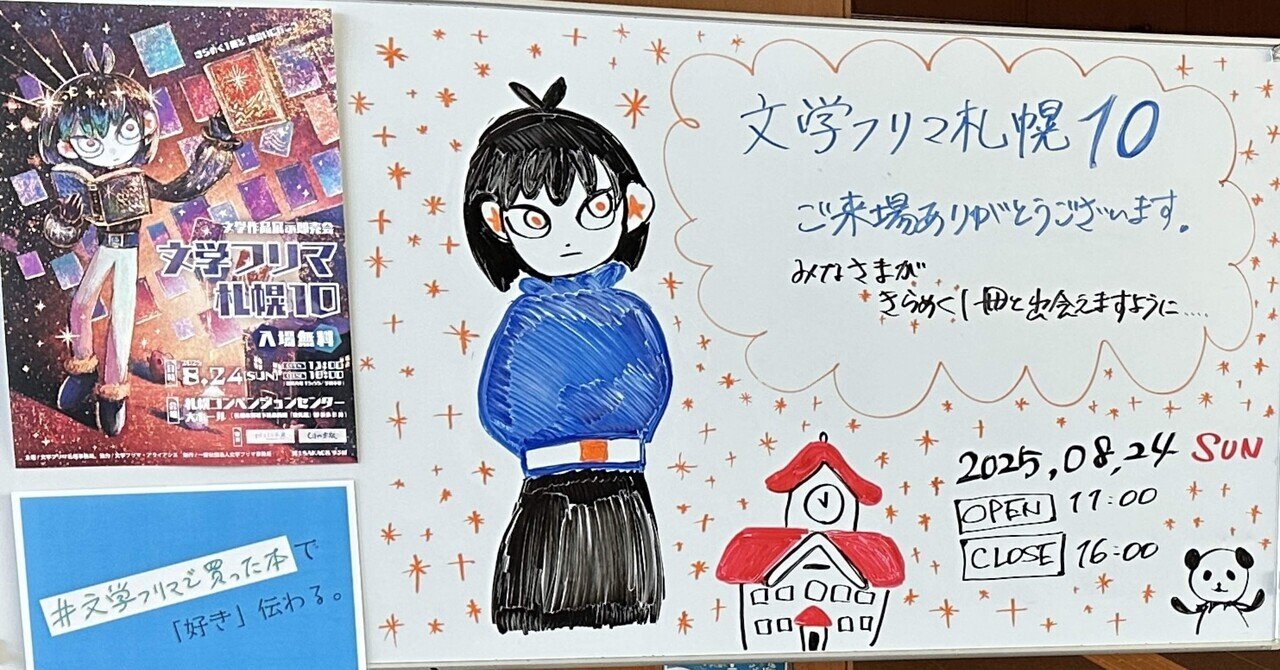 きらめく1冊と
文学作品展示即売会
文学フリマ
札幌10
入場無料
2025
8.24(SUN)
OPEN 11:00
CLOSE 16:00
札幌コンベンションセンター
#文学フリマで買った本で
「好き」伝わる。
文学フリマ札幌10
ご来場ありがとうございます。
みなさまが
きらめく1冊と出会えますように.....
2025.08.24 SUN
OPEN 11:00
CLOSE 16:00